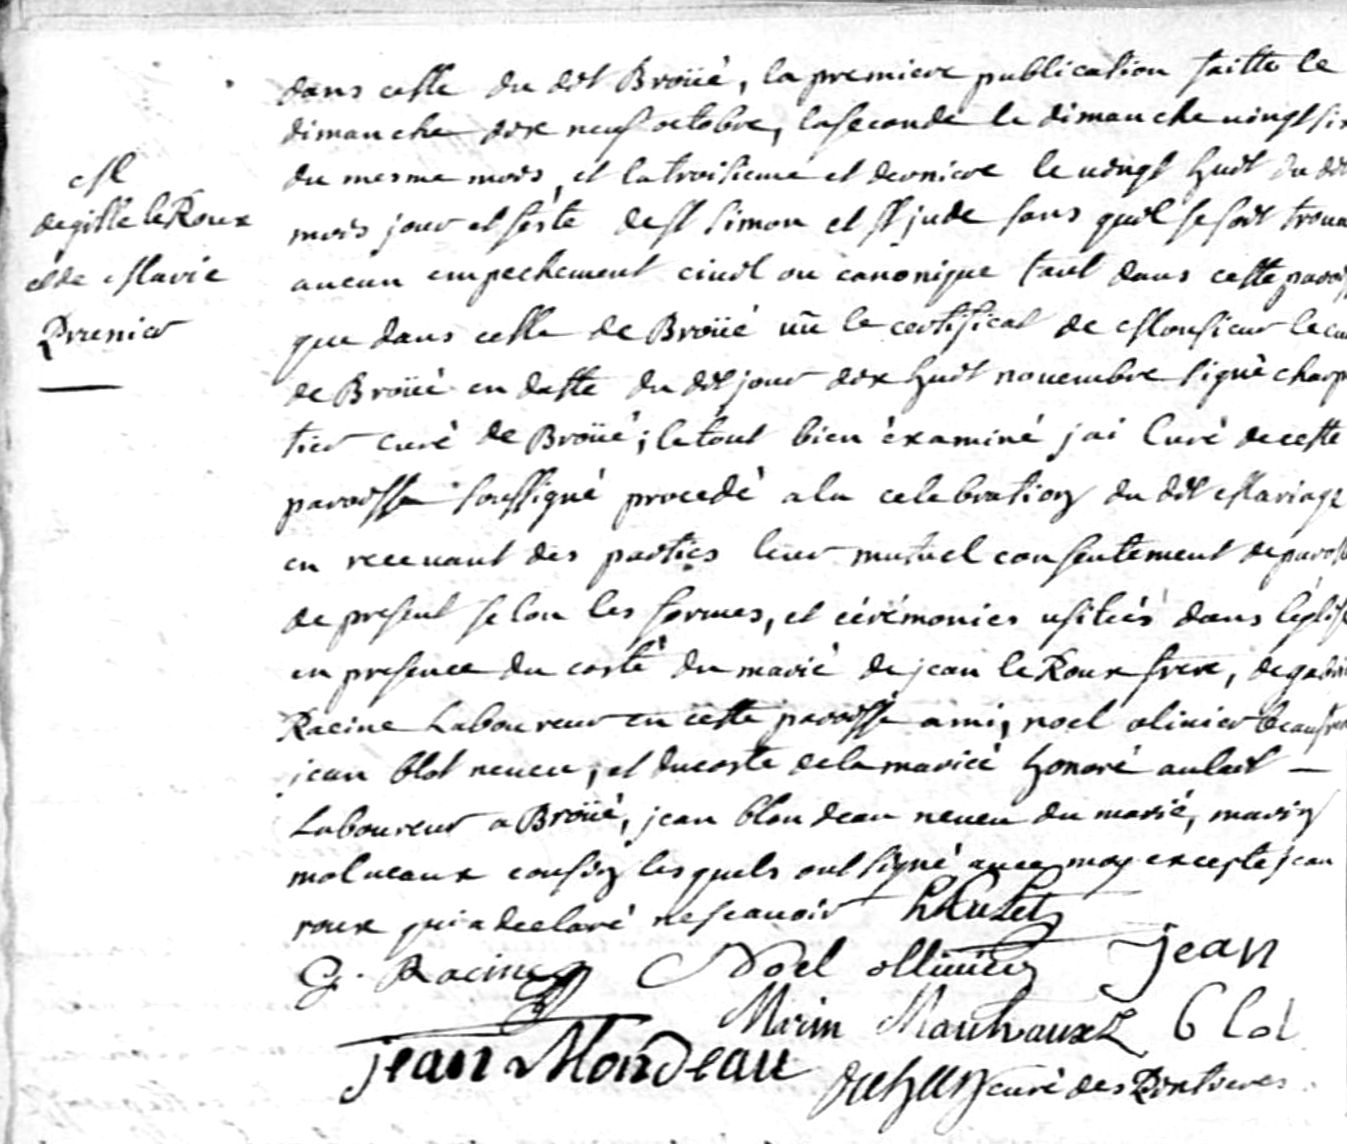 M
de gille le Roux
et de Marie
Prunier
dans celle du dit Broüé, la premiere publication faitte le
dimanche dix neuf octobre, la seconde le dimanche vingt six
du mesme mois, et la troisieme et derniere le vingt huit du dit
mois jour et feste de st simon et st jude sans quil se soit trouvé
aucun empechement civil ou canonique tant dans cette paroi
que dans celle de Broüé vû le certificat de Monsieur le cu
de Broüé en datte du dit jour dix huit novembre signé charp
tier curé de Broüé; le tout bien éxaminé j'ai Curé de cette
paroisse soussigné procedé a la celebration du dit Mariage
en recevant des parties leur mutuel consentement de parolle
de present selon les formes, et cérémonies usitées dans l'églis
en presence du costé du marié de jean le Roux frere, de gab
Racine Laboureur en cette paroisse ami, noel olivier beaufrere
jean blot neveu, et du coste de la mariée honoré aulait
Laboureur a Broüé, jean blondeau neveu du marié, marin
malveaux cousin lesquels ont signé avec moy excepté jean
roux qui a declaré ne scavoir
G. Racine Noel ollivier jean
Marin Mauvaux blot
jean Blondeau curé des Pintieres